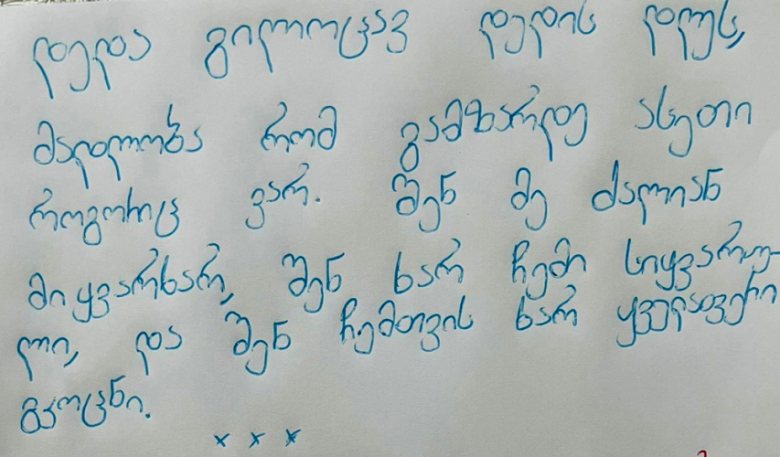 დედა გილოცავ დედის დღეს,
მადლობა რომ გამზარდე ასეთი
როგორიც ვარ. შენ მე ძალიან
მიყვარხარ, შენ ხარ ჩემი სიყვარუ-
ლი, და შენ ჩემთვის ხარ ყველაფერი
გკოცნი.
x x x